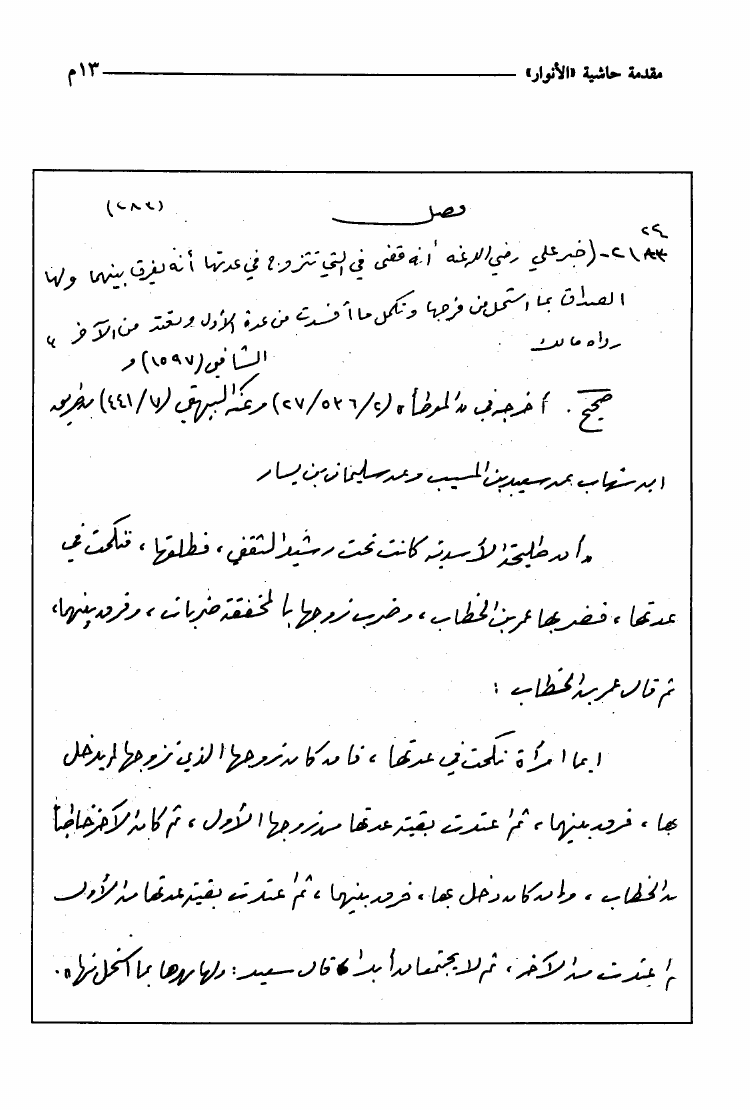 مقدمة حاشية «الأنوار» ١٣م
فصل (٢٨٣)
٢٤
٢١٨٣- (خبر علي رضي الله عنه أنه قضى في التي تتزوج في عدتها أنه يفرق بينهما ولها
الصداق بما استحل من فرجها وتكمل ما أفسدت من عدة الأول وتعتد من الآخر"
رواه مالك
الشافعي (١٥٩٧) و
صحيح. أخرجه في "الموطأ" (٢/٥٣٦/٢٧) وعنه البيهقي (٧/٤٤١) من طريق
ابن شهاب عن سعيد بن المسيب وعن سليمان بن يسار
"أن طليحة الأسدية كانت تحت رشيد الثقفي، فطلقها، فنكحت في
عدتها، فضربها عمر بن الخطاب، وضرب زوجها بالمخفقة ضربات، وفرق بينهما،
ثم قال عمر بن الخطاب:
أيما امرأة نكحت في عدتها، فإن كان زوجها الذي تزوجها لم يدخل
بها، فرق بينهما، ثم اعتدت بقية عدتها من زوجها الأول، ثم كان الآخر خاطباً
من الخطاب، وإن كان دخل بها، فرق بينهما، ثم اعتدت بقية عدتها من الأول
ثم اعتدت من الآخر، ثم لا يجتمعان أبدا. قال سعيد: ولها مهرها بما استحل منها".